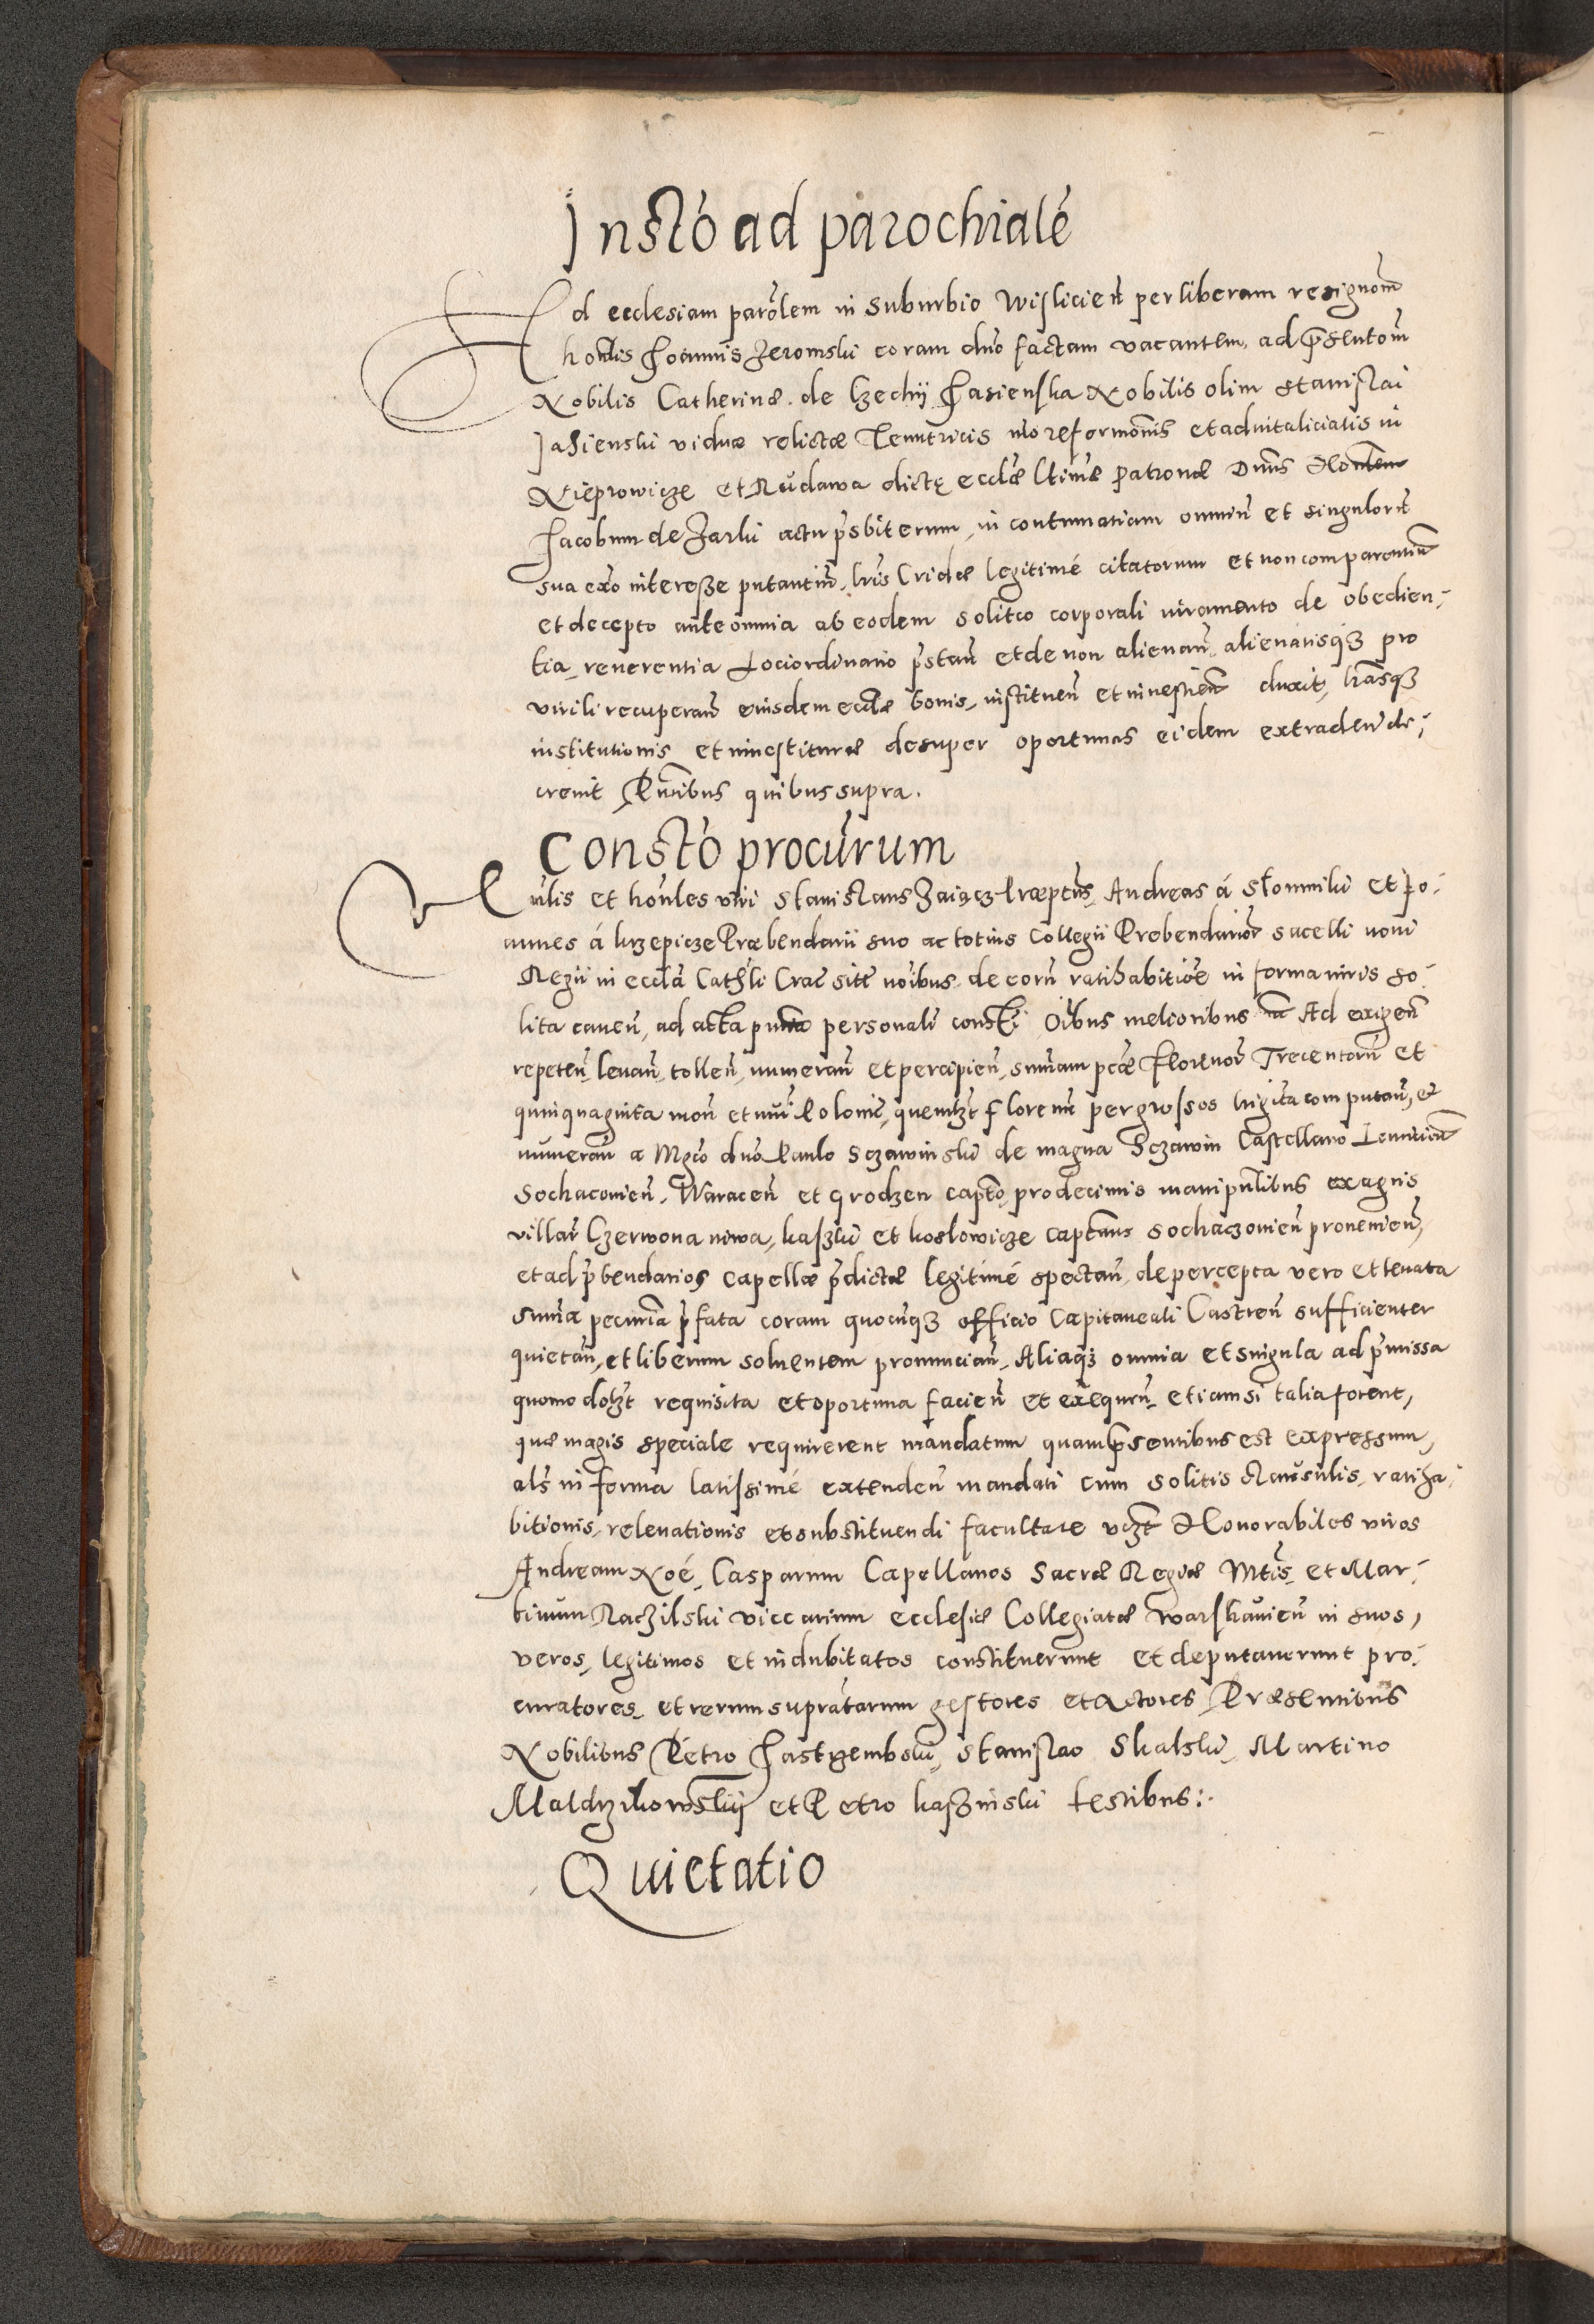 Instō ad parochialē
Ad ecclesiam parōlem in suburbio Wisliciēn per liberam resignōm
honōlis Joannis Zeromski coram dnō factam vacantem, ad p̄sentōm
Nobilis Catherinæ de Czechy Jasienska Nobilis olim Stanislai
Jasienski viduæ relictæ Tenutricis nīo reformōnis et advitaliciatis in
Nieprowicze et Rudawa dictę ecclæ ltimæ patronæ Dnūs Honōlem
Jacobum de Zarki actu p̄sbiterum, in contumatiam omniū et singulorū
sua eā̄o interesse putantiū, lrīs Cridæ legitimé citatorum et non comparentiū
et decepto ante omnia ab eodem solito corporali iuramento de obedien¬
tia, reverentia Lociordinario p̄stan̄ et de non alienan̄ alienatisq₃ pro
virili recuperan̄ eiusdem ecclæ bonis, instituen̄ et investien̄ duxit, lrāsq₃
institutionis et investituræ desuper oportunas eidem extraden̄ de¬
crevit Pn̄tibus quibus supra.
Constō procūrum
Vn̄lis et honles viri Stanislaus Zaiącz Præptūs, Andreas á Slomniki et Jo¬
annes á krzepicze Præbendarii suo ac totius Collegii Prebendariōr sacelli novi
Regii in ecclā Cathli Crac sitt noībus de eorū ratihabitiōe in forma iuris so¬
lita caven̄, ad acta pn̄tia personalī constī Oībus melioribus m̄a Ad exigen̄
repeten̄, levan̄, tollen̄, numeran̄ et percipien̄, sum̄am pecæ Florenōr Trecentorū et
quinquaginta mon̄ et nūi Polonic, quemlzt florenū per grossos trigīta computan̄, et
numeran̄ a Mgco dnō Paulo Sczawinski de magna Sczawin Castellano Lenniciēn
Sochacovien̄, Waracen̄ et grodzen captō, pro decimis manipulibus ex agris
villar̄ Czerwona niwa, kaski et koslowicze captāus sochaczovien̄ provenien̄,
et ad p̄bendarios capellæ p̄dictæ legitimé spectan̄, de percepta vero et levata
sum̄a pecuniā p̄fata coram quocunq₃ officio Capitaneali Castren̄ sufficienter
quietan̄, et liberum solventem pronuncian̄, Aliaq₃ omnia et singula ad p̄missa
quomodolzt requisita et oportuna facien̄ et exequen̄, etiam si talia forent,
quæ magis speciale requirerent mandatum quam p̄sentibus est expressum,
als̄ in forma latissimé extenden̄ mandati cum solitis clausulis, ratiha¬
bitionis, relevationis et substituendi facultate vczt Honorabiles viros
Andream Noé, Casparum Capellanos Sacræ Regiæ Mtīs, et Mar¬
tinum Raczilski viccarium ecclesiæ Collegiatæ warschavien̄ in suos,
veros, legitimos et indubitatos constituerunt et deputaverunt pro¬
curatores, et rerum supratarum gestores et Actores Præsentibus
Nobilibus Petro Jastrzembski, Stanislao Skalski, Martino
Maldrzikowskij et Petro kaszinski testibus:.
Quietatio